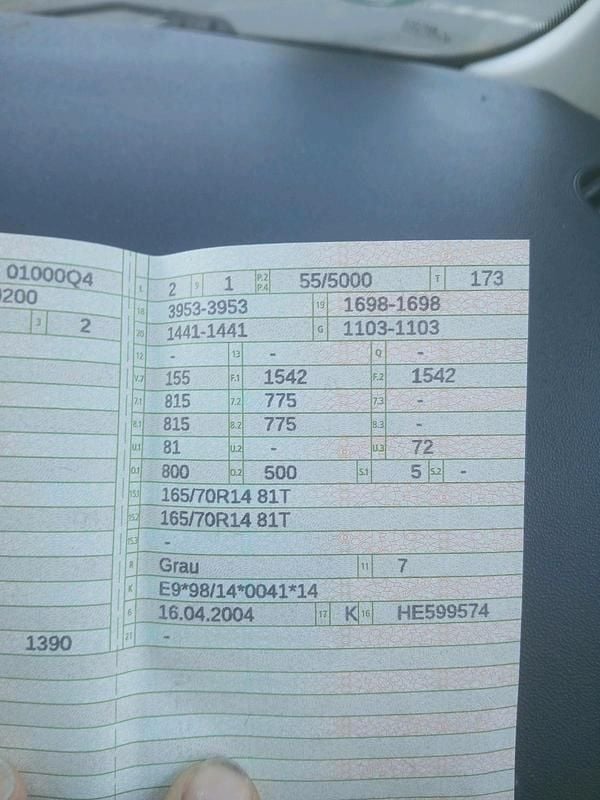 01000Q4
0200
3 2
1390
L 2 9 1 P.2 P.4 55/5000 T 173
18 3953-3953 19 1698-1698
20 1441-1441 G 1103-1103
12 - 13 - Q -
V.7 155 F.1 1542 F.2 1542
7.1 815 7.2 775 7.3 -
8.1 815 8.2 775 8.3 -
U.1 81 U.2 - U.3 72
O.1 800 O.2 500 S.1 5 S.2 -
15.1 165/70R14 81T
15.2 165/70R14 81T
15.3 -
R Grau 11 7
K E9*98/14*0041*14
6 16.04.2004 17 K 16 HE599574
21 -